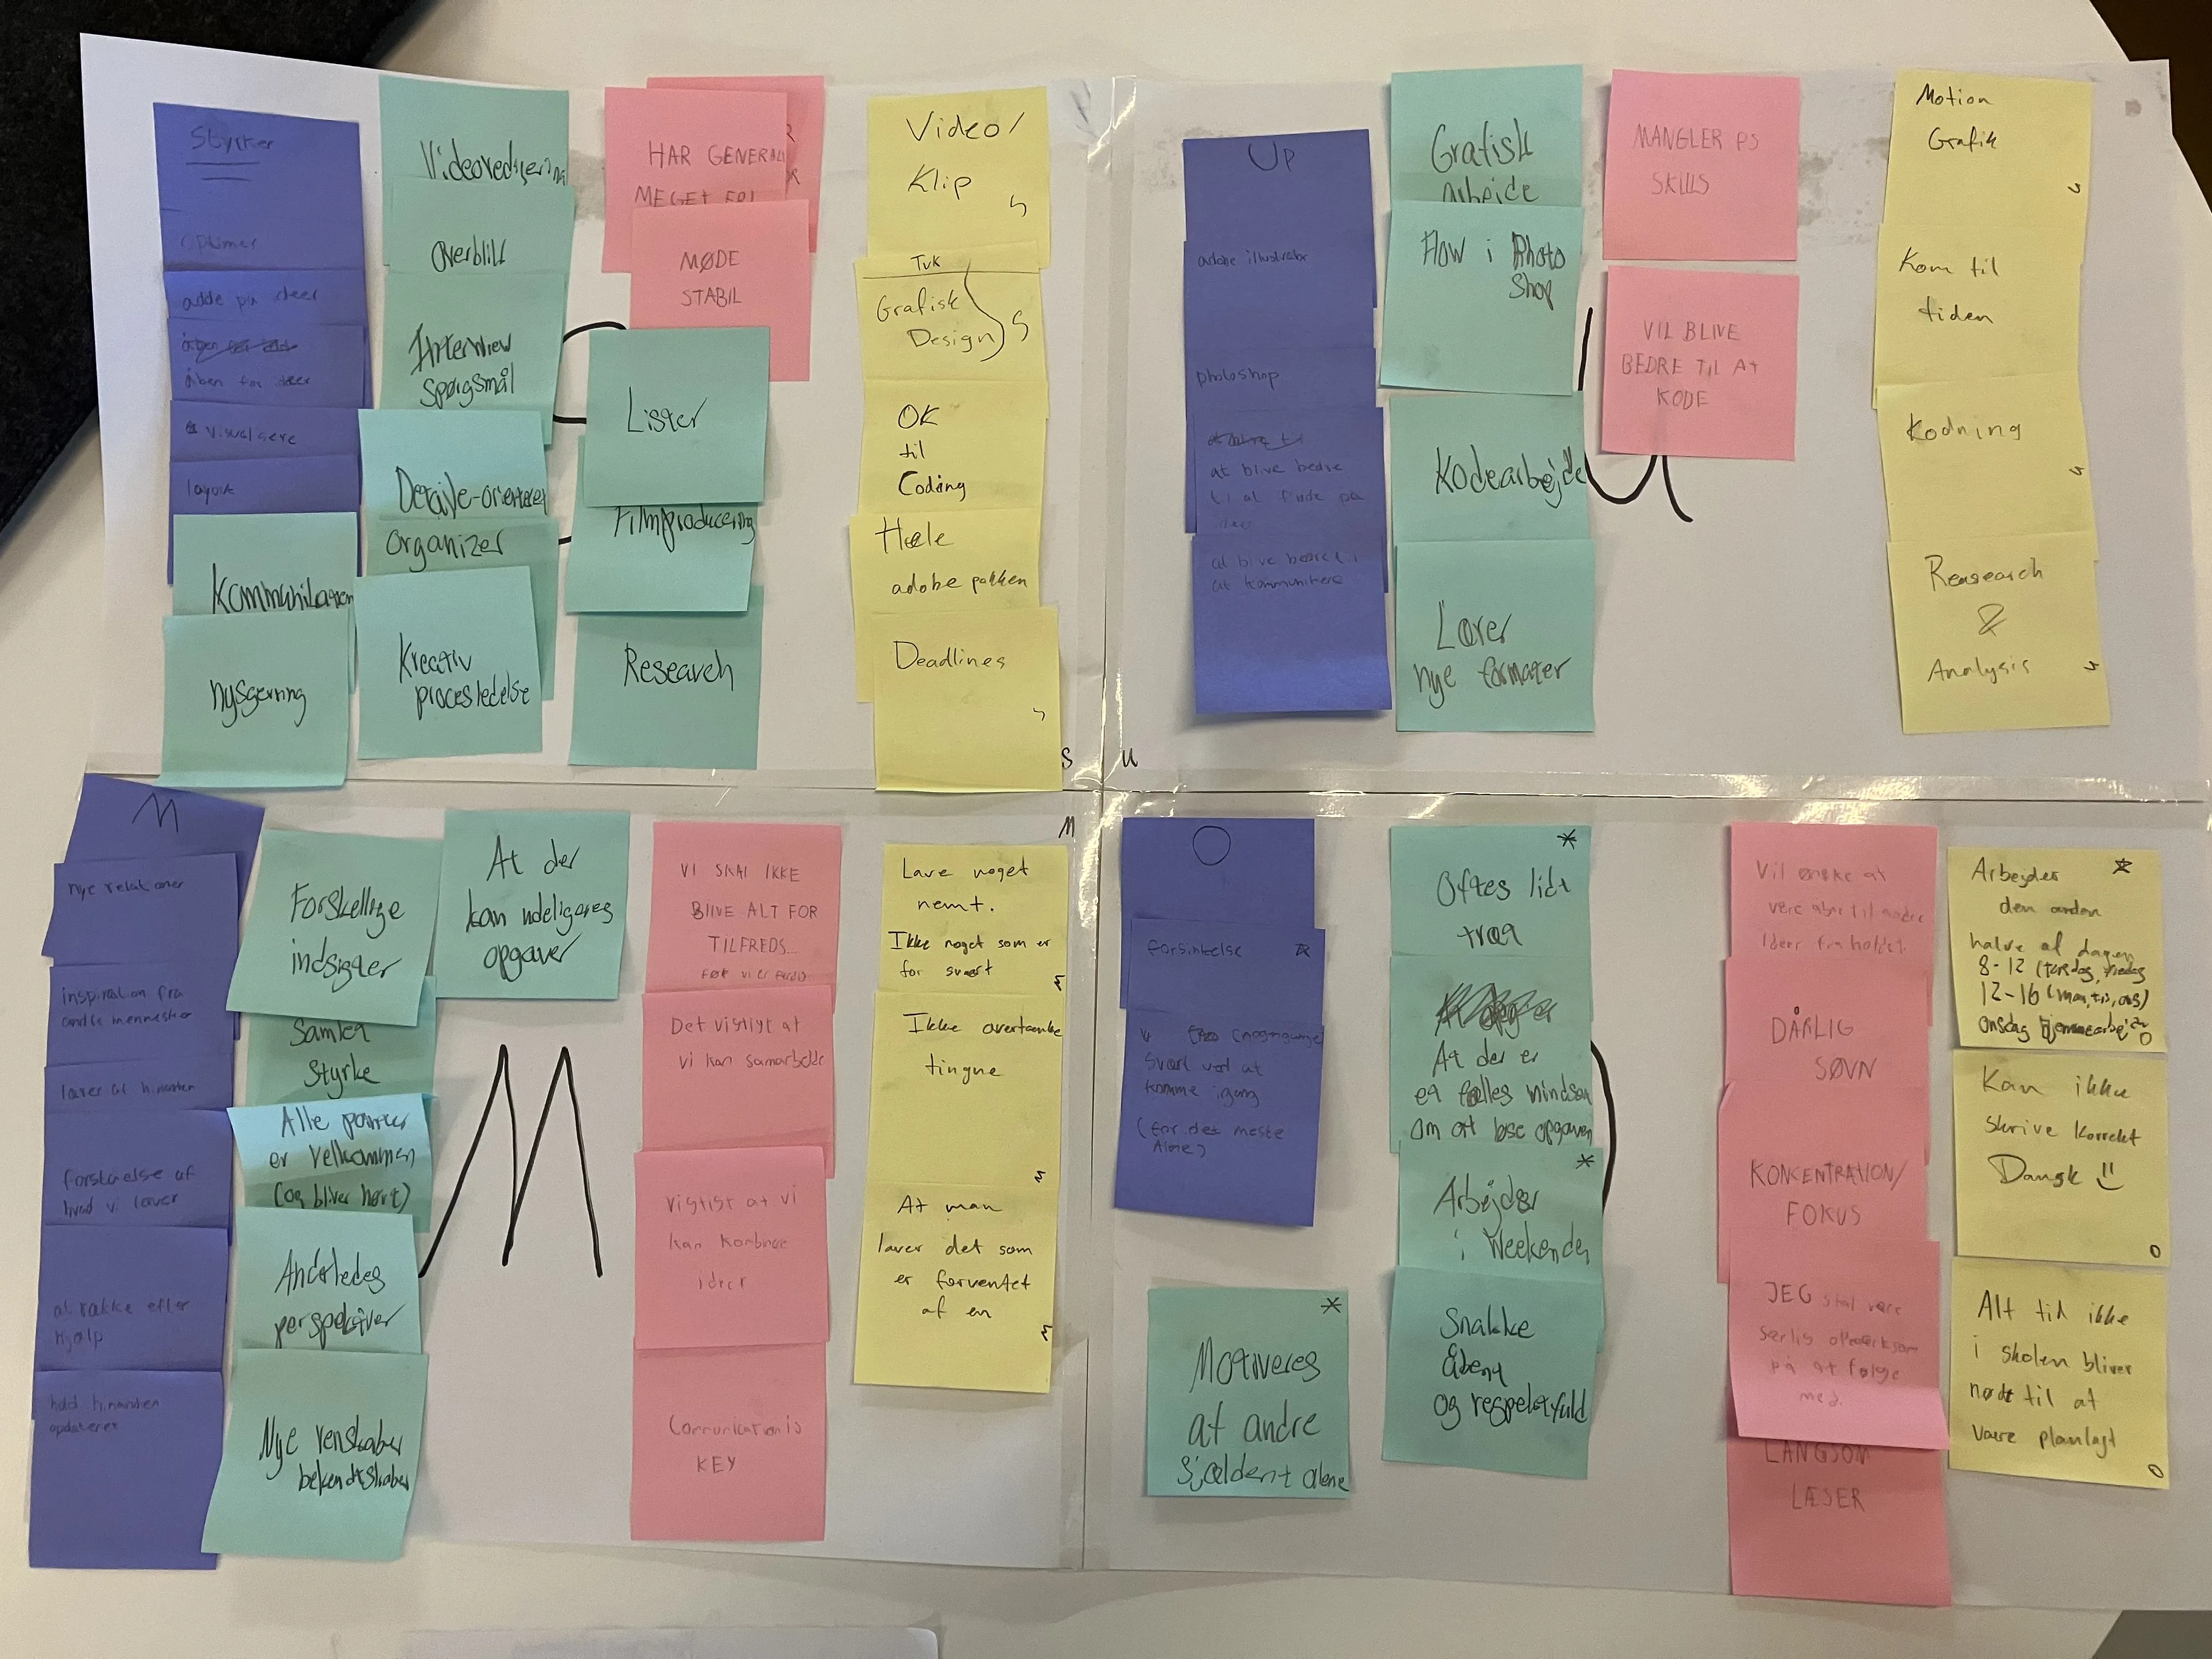 Styrker
adde på ideer
åben for ideer
visualisere
layout
Kommunikation
nysgerrig
Videoredigering
Overblik
Interview
spørgsmål
Detalje-orienteret
Organizer
Kreativ
procesledelse
HAR GENERALT
MEGET FRI
MØDE
STABIL
Lister
Filmproducering
Research
Video/
Klip
S
Tvk
Grafisk
Design
S
OK
til
Coding
Hele
adobe pakken
Deadlines
S
Up
adobe illustrator
photoshop
at blive bedre
til at finde på
ideer
at blive bedre i
at kommunikere
Grafisk
arbejde
Flow i Photo
Shop
Kodearbejde
Lærer
nye formater
MANGLER PS
SKILLS
VIL BLIVE
BEDRE TIL AT
KODE
U
Motion
Grafik
Kom til
tiden
Kodning
Reasearch
&
Analysis
U
M
nye relationer
inspiration fra
andre mennesker
lærer af hinanden
forståelse af
hvad vi laver
at række efter
hjælp
hold hinanden
opdateret
Forskellige
indsigter
Samlet
Styrke
Alle parter
er velkommen
(og bliver hørt)
Anderledes
perspektiver
Nye venskaber
bekendtskaber
At der
kan udeligeres
opgaver
M
VI SKAL IKKE
BLIVE ALT FOR
TILFREDS...
FØR VI ER FÆRDIG
Det vigtigt at
vi kan samarbejde
vigtigt at vi
kan kombinere
ideer
Comunication is
KEY
M
Lave noget
nemt.
Ikke noget som er
for svært
Ikke overtænke
tingne
At man
laver det som
er forventet
af en
O
forsinkelse
svært ved at
komme igang
(for det meste
Alene)
Motiveres
at andre
Sjældent alene
Oftes lidt
træt
At der er
et fælles mindset
om at løse opgaven
Arbejder
i Weekenden
Snakke
Åbent
og respektfuld
Vil ønske at
være åben til andre
Ideer fra holdet
DÅRLIG
SØVN
KONCENTRATION/
FOKUS
JEG skal være
særlig opmærksom
på at følge
med.
LANGSOM
LÆSER
Arbejder
den anden
halve af dagen
8-12 (torsdag, fredag
12-16 (man, tis, ons)
onsdag hjemmearbejde
O
Kan ikke
skrive korrekt
Dansk
O
Alt til ikke
i skolen bliver
nødt til at
være planlagt
O